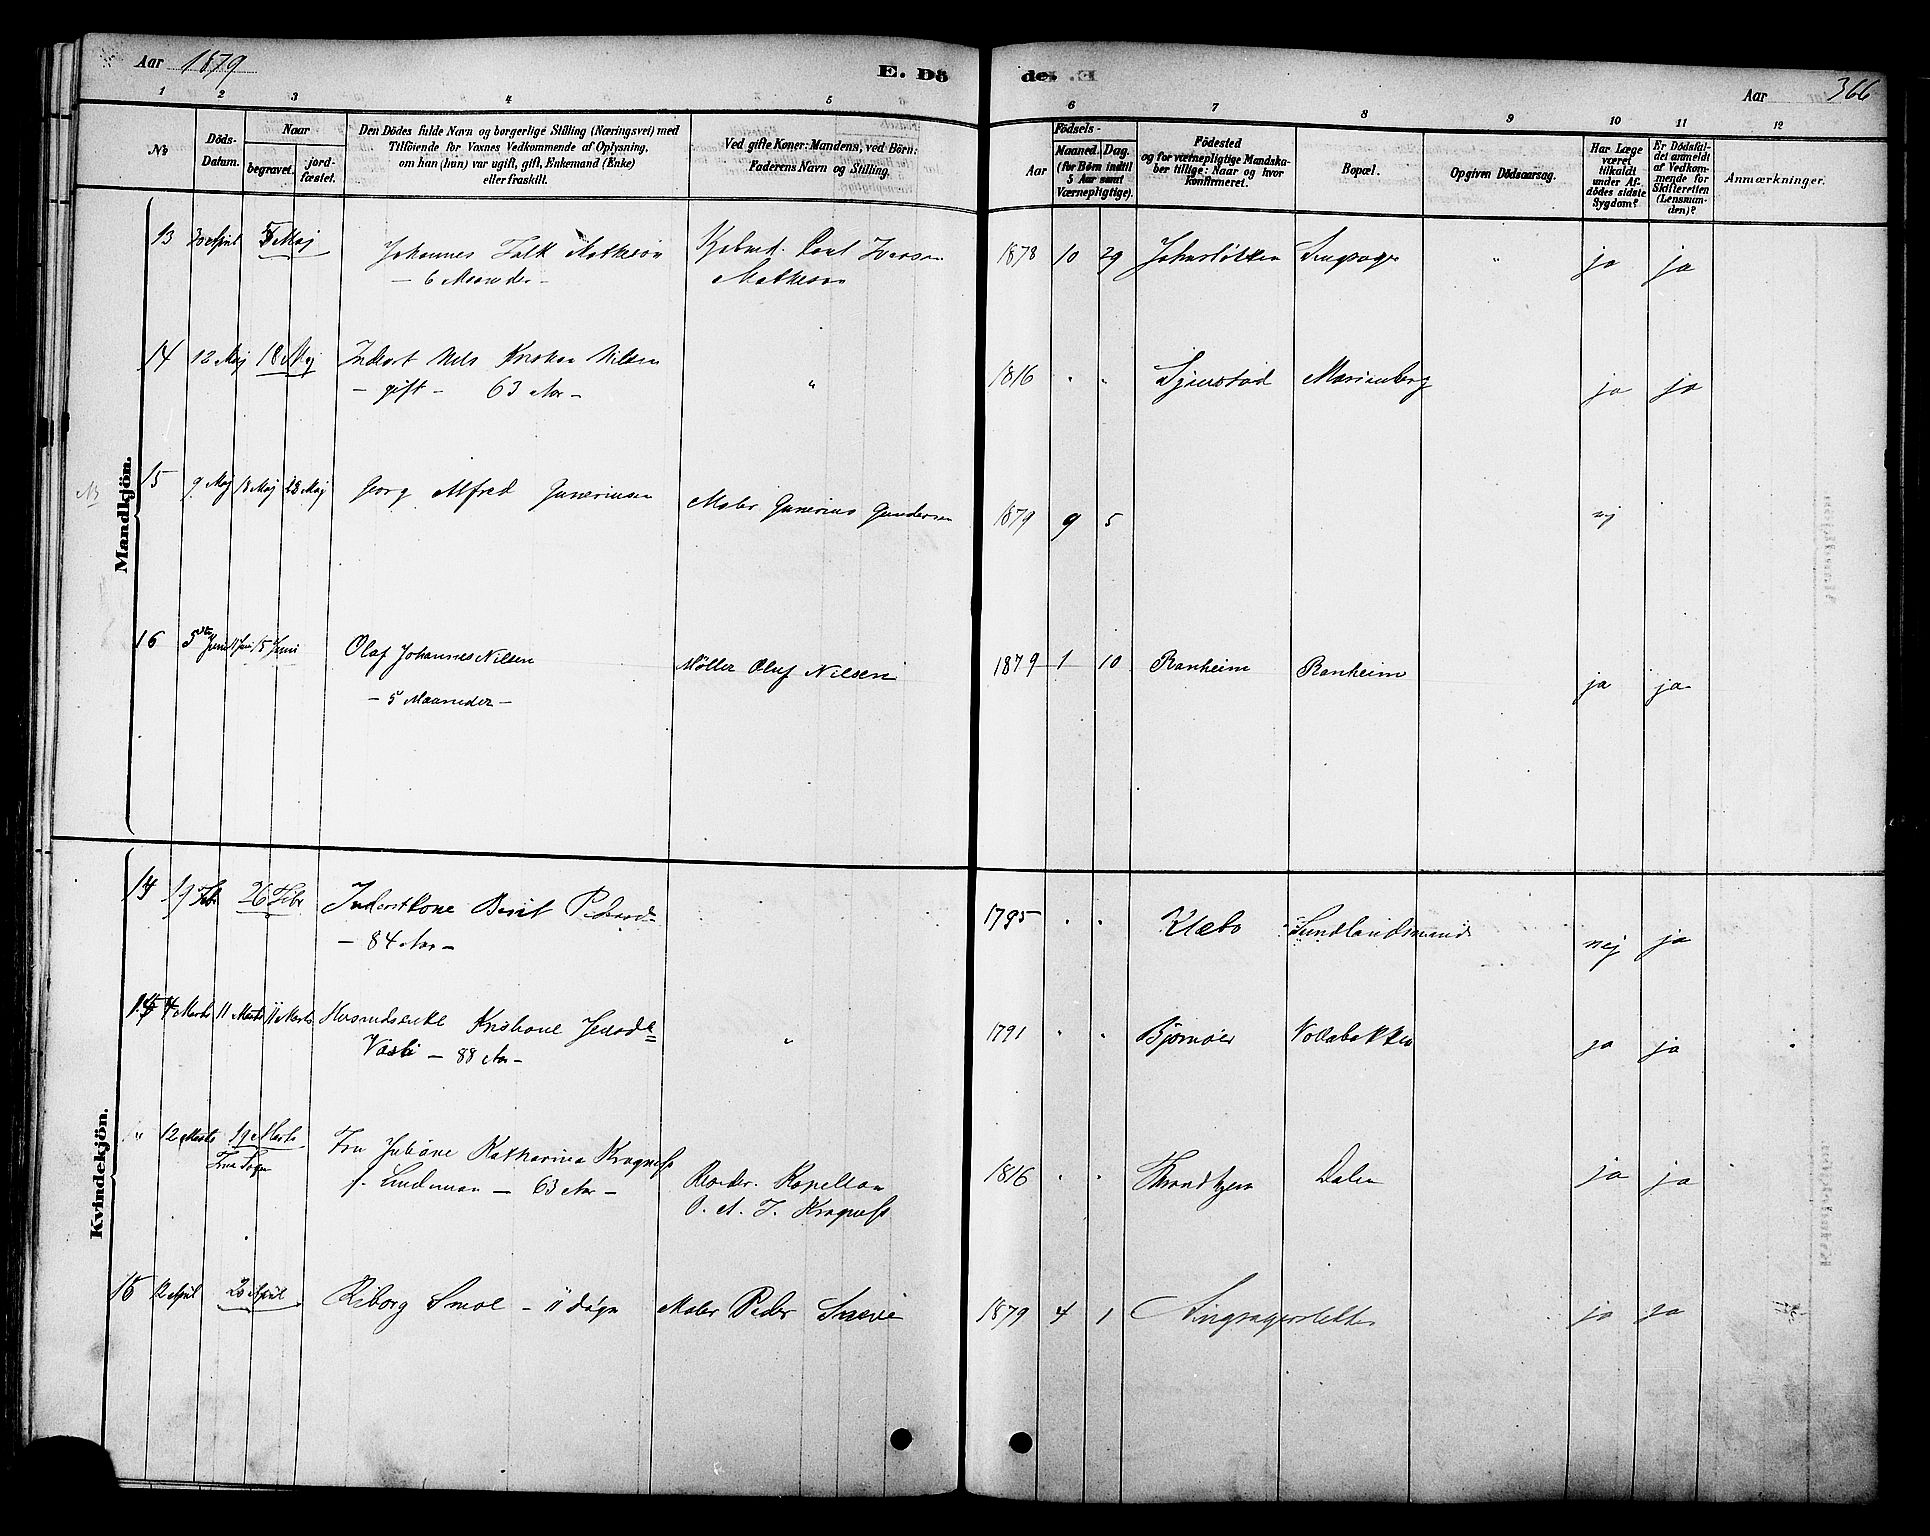 Aar 1879
E. Dö
des .E
Aar 366
1 2 3 4 5 6 7 8 9 10 11 12
No
Döds-Datum.
Naar
begravet.
jord-fæstet.
Den Dödes fulde Navn og borgerlige Stilling (Næringsvei) med
Tilföiende for Voxnes Vedkommende af Oplysning,
om han (hun) var ugift, gift, Enkemand (Enke)
eller fraskilt.
Ved gifte Koner: Mandens, ved Börn:
Faderens Navn og Stilling.
Födsels-
Aar
Maaned. Dag.
(for Börn indtil
5 Aar samt
Værnepligtige).
Födested
og for værnepligtige Mandska-
ber tillige: Naar og hvor
Konfirmeret.
Bopæl.
Opgiven Dödsaarsag.
Har Læge
været
tilkaldt
under Af-
dödes sidste
Sygdom?
Er Dödsfal-
det anmeldt
af Vedkom-
mende for
Skifteretten
(Lensman-
den)?
Anmærkninger.
Mandkjön.
13 30 April 5 Maj Johannes Falk Mathison Iversen 1878 10 29 ja ja
- 6 Maaneder - Mathison
14 12 Maj 18 Maj Inderst Nils Kristian Nilsen " 1816 " " Marienberg ja ja
- gift - 63 Aar -
15 9 Maj 18 Maj 28 Maj Georg Alfred Guneriusen Maler Gunerius Gundersen 1879 9 5 nej
16 5te Juni 11 Juni 15 Juni Olaf Johannes Nilsen Møller Oluf Nilsen 1879 1 10 Ranheim Ranheim ja ja
- 5 Maaneder -
Kvindekjön.
14 19 Febr 26 Febr Inderstkone Berit Pedersd. 1795 " " Klæbo Sundlandsmand nej ja
- 84 Aar -
15 4 Marts 11 Marts 11 Marts Husmdsenke " 1791 " " Vollabakken ja ja
- 88 Aar -
12 Marts 19 Marts Fru Juliane Katharina 1816 " " Throndhjem Dalen ja ja
f. Lindeman - 63 Aar - Kapellan
16 12 April 20 April Riborg Smoe - 11 døgn Maler Peder 1879 4 1 ja ja